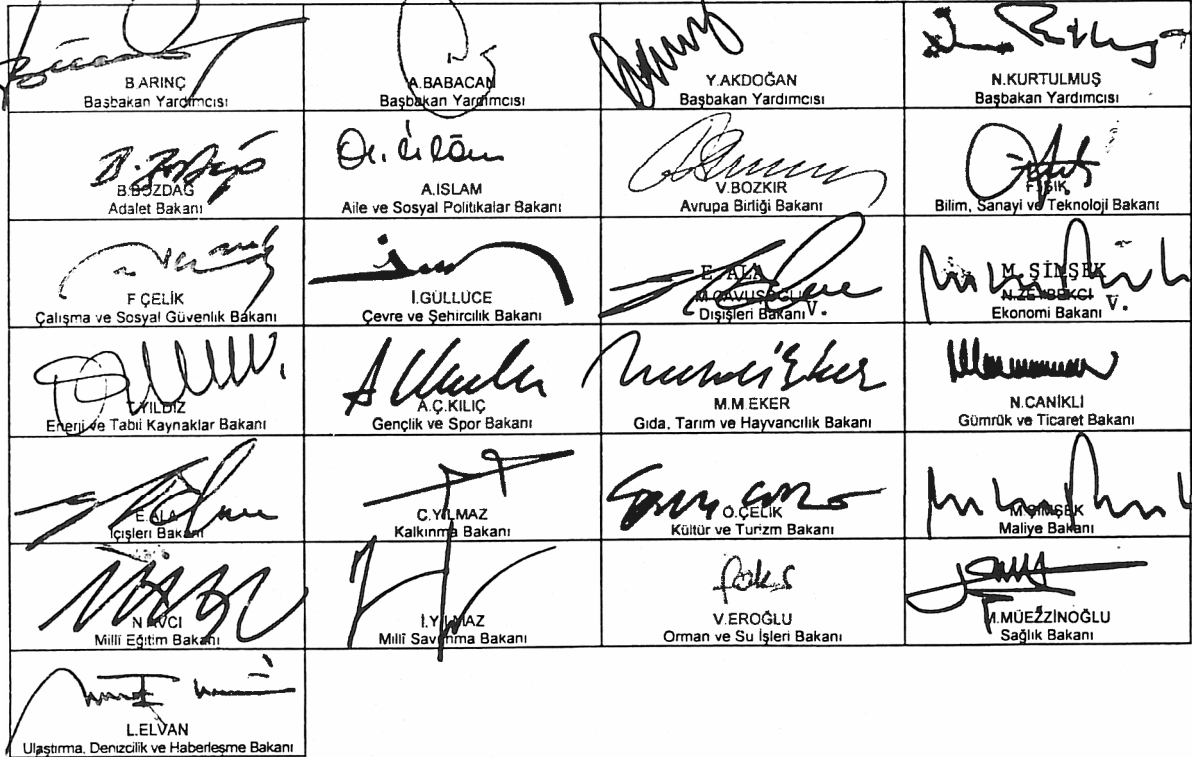 B.ARINÇ
Başbakan Yardımcısı
A.BABACAN
Başbakan Yardımcısı
Y.AKDOĞAN
Başbakan Yardımcısı
N.KURTULMUŞ
Başbakan Yardımcısı
B.BOZDAĞ
Adalet Bakanı
A.İSLAM
Aile ve Sosyal Politikalar Bakanı
V.BOZKIR
Avrupa Birliği Bakanı
F.IŞIK
Bilim, Sanayi ve Teknoloji Bakanı
F.ÇELİK
Çalışma ve Sosyal Güvenlik Bakanı
İ.GÜLLÜCE
Çevre ve Şehircilik Bakanı
E. ALA
M.ÇAVUŞOĞLU
Dışişleri Bakanı V.
M. ŞİMŞEK
N.ZEYBEKCİ
Ekonomi Bakanı V.
T.YILDIZ
Enerji ve Tabii Kaynaklar Bakanı
A.Ç.KILIÇ
Gençlik ve Spor Bakanı
M.M.EKER
Gıda, Tarım ve Hayvancılık Bakanı
N.CANİKLİ
Gümrük ve Ticaret Bakanı
E.ALA
İçişleri Bakanı
C.YILMAZ
Kalkınma Bakanı
Ö.ÇELİK
Kültür ve Turizm Bakanı
M.ŞİMŞEK
Maliye Bakanı
N.AVCI
Millî Eğitim Bakanı
İ.YILMAZ
Millî Savunma Bakanı
V.EROĞLU
Orman ve Su İşleri Bakanı
M.MÜEZZİNOĞLU
Sağlık Bakanı
L.ELVAN
Ulaştırma, Denizcilik ve Haberleşme Bakanı